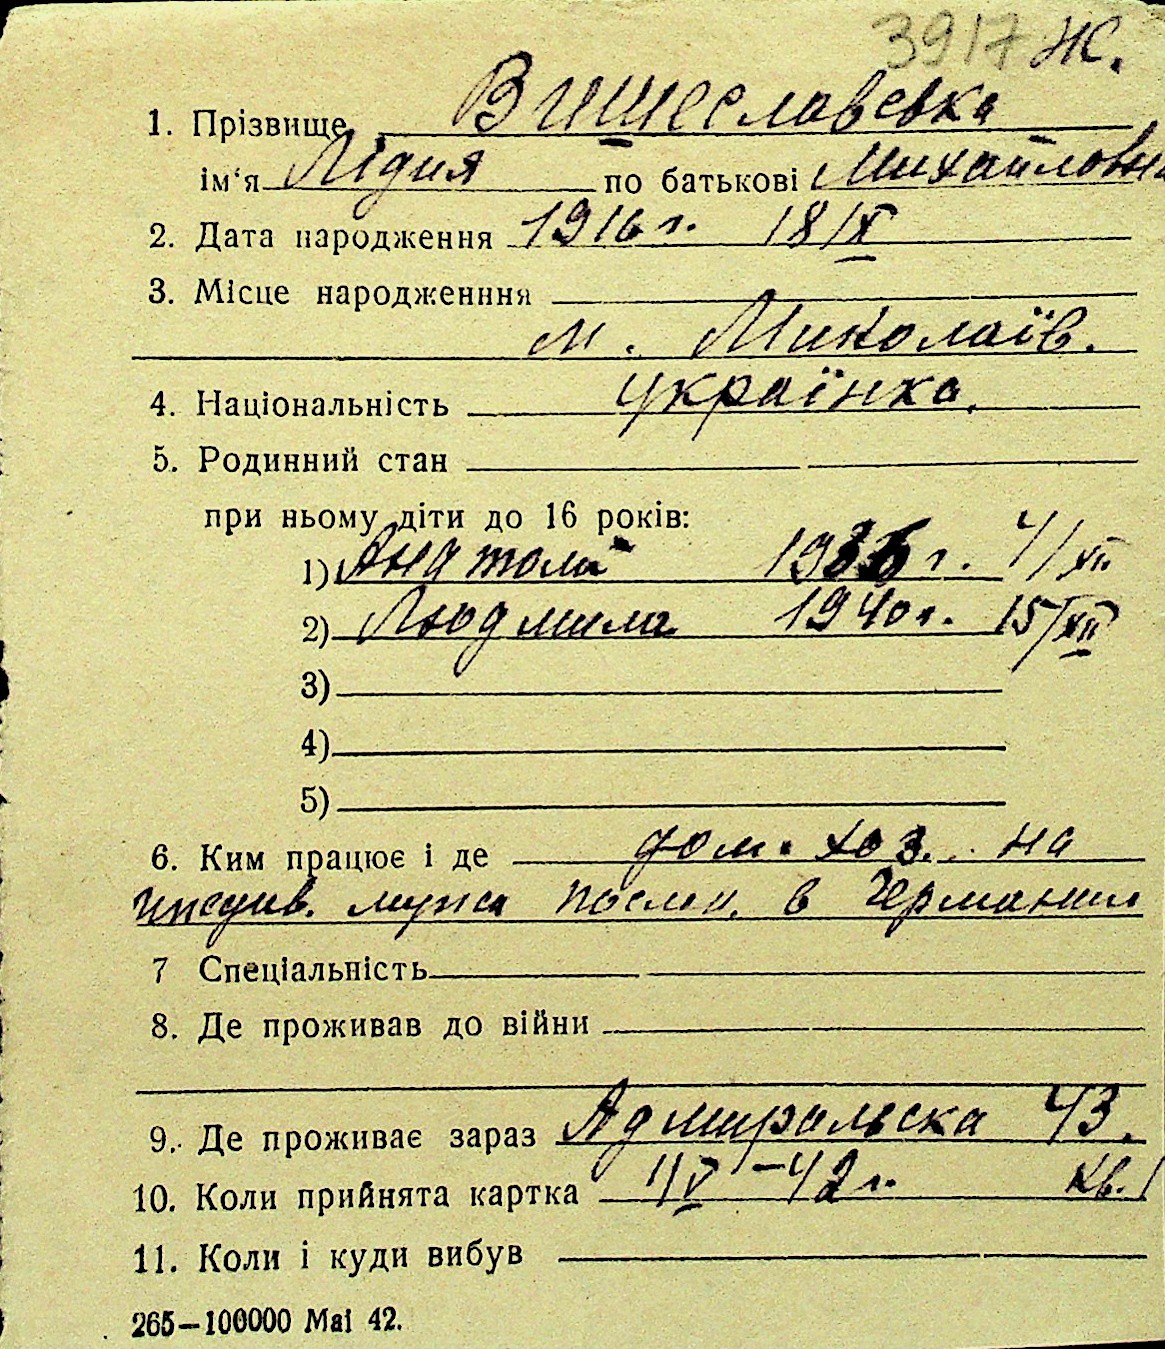 3917 Ж.
1. Прізвище Вишеславська
ім'я Лідия по батькові Михайловна
2. Дата народження 1916 г. 18/X
3. Місце народженння
м. Миколаїв.
4. Національність українка.
5. Родинний стан
при ньому діти до 16 років:
1) Анатолій г. 4/XII
2) Людмила 1940 г. 15/XII
3)
4)
5)
6. Ким працює і де дом. хоз. на
иждив. мужа в Германии
7 Спеціальність
8. Де проживав до війни
9. Де проживає зараз Адмиральска 43.
10. Коли прийнята картка 42 г. кв. 1
11. Коли і куди вибув
265—100000 Mai 42.